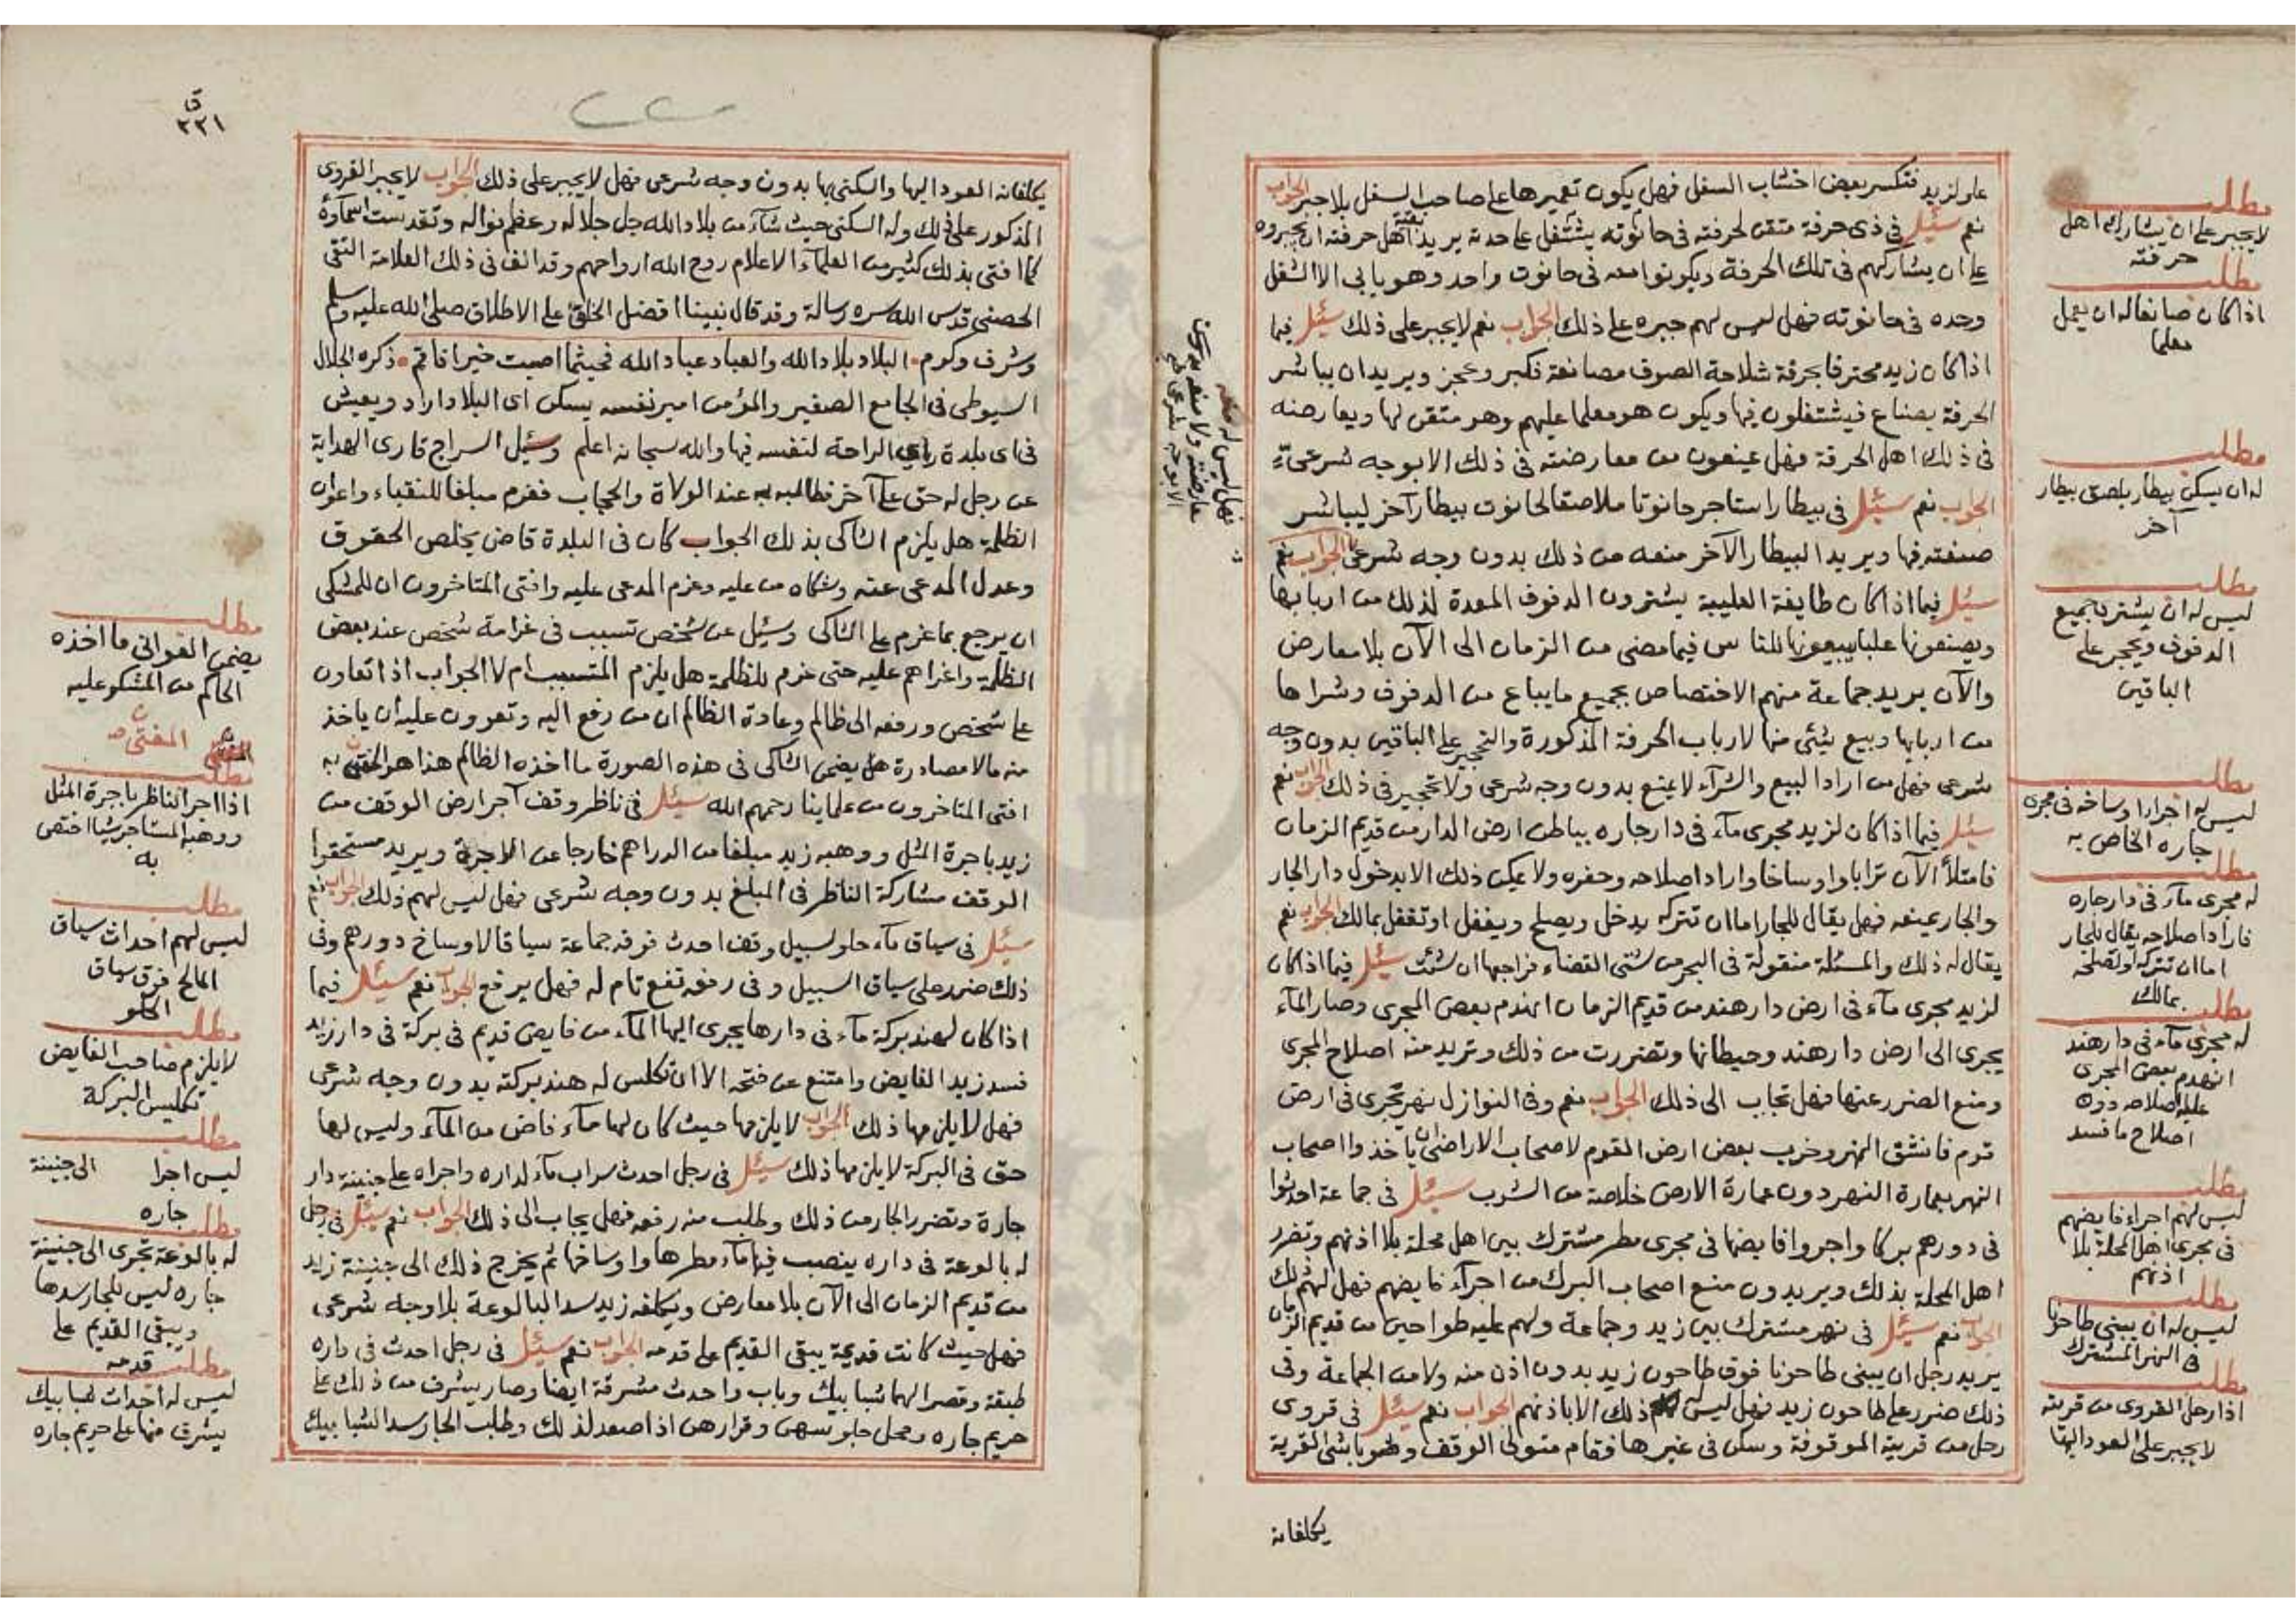 علو لزيد فتكسر بعض اخشاب السفل فهل يكون تعميرها على صاحب السفل بلا جبر الجواب
نعم سئل في ذي حرفة متقن لحرفته في حانوته يشتغل على حدته يريد بقية اهل حرفته ان يجبروه
على ان يشاركهم في تلك الحرفة ويكونوا معه في حانوت واحد وهو يابى الا الشغل
وحده في حانوته فهل ليس لهم جبره على ذلك الجواب نعم لا يجبر على ذلك سئل فيما
اذا كان زيد محترفا بحرفة شلاحة الصوف مصانعة فكبر وعجز ويريد ان يباشر
الحرفة بصناع فيشتغلون فيها ويكون هو معلما عليهم وهو متقن لها ويعارضه
في ذلك اهل الحرفة فهل يمنعون من معارضته في ذلك الا بوجه شرعي
الجواب نعم سئل في بيطار استاجر حانوتا ملاصقا لحانوت بيطار آخر ليباشر
صنعته فيها ويريد البيطار الآخر منعه من ذلك بدون وجه شرعي الجواب نعم
سئل فيما اذا كان طايفة العلبية يشترون الدفوف المعدة لذلك من اربابها
ويصنعونها علبا يبيعونها للناس فيما مضى من الزمان الى الآن بلا معارض
والآن يريد جماعة منهم الاختصاص بجميع ما يباع من الدفوف وشراها
من اربابها وبيع شيئ منها لارباب الحرفة المذكورة والتحجير على الباقين بدون وجه
شرعي فهل من اراد البيع والشرآء لا يمنع بدون وجه شرعي ولا تحجير في ذلك الجواب نعم
سئل فيما اذا كان لزيد مجرى مآء في دار جاره بباطن ارض الدار من قديم الزمان
فامتلأ الآن ترابا واوساخا واراد اصلاحه وحفره ولا يمكن ذلك الا بدخول دار الجار
والجار يمنعه فهل يقال للجار اما ان تتركه يدخل ويصلح ويفعل او تفعل بمالك الجواب نعم
يقال له ذلك والمسئلة منقولة في البحر من شتى القضاء فراجعها ان شئت سئل فيما اذا كان
لزيد مجرى مآء في ارض دار هند من قديم الزمان انهدم بعض المجرى وصار المآء
يجري الى ارض دار هند وحيطانها وتضررت من ذلك وتريد منه اصلاح المجرى
ومنع الضرر عنها فهل تجاب الى ذلك الجواب نعم وفي النوازل نهر يجري في ارض
قوم فانشق النهر وخرب بعض ارض القوم لاصحاب الاراضي ان ياخذوا اصحاب
النهر بعمارة النهر دون عمارة الارض خلاصة من الشرب سئل في جماعة احدثوا
في دورهم بركا واجروا فايضها في مجرى مطر مشترك بين اهل محلة بلا اذنهم وتضرر
اهل المحلة بذلك ويريدون منع اصحاب البرك من اجرآء فايضهم فهل لهم ذلك
الجواب نعم سئل في نهر مشترك بين زيد وجماعة ولهم عليه طواحين من قديم الزمان
يريد رجل ان يبني طاحونا فوق طاحون زيد بدون اذن منه ولا من الجماعة وفي
ذلك ضرر على طاحون زيد فهل ليس له ذلك الا باذنهم الجواب نعم سئل في قروي
رحل من قريته الموقوفة وسكن في غيرها فقام متولي الوقف وصوباشي القرية
يكلفانه
مطلب
لا يجبر على ان يشارك اهل
حرفته
مطلب
اذا كان صانعا له ان يعمل
معلما
مطلب
له ان يسكن بيطار بلصق بيطار
آخر
مطلب
ليس له ان يشتري جميع
الدفوف ويحجر على
الباقين
مطلب
ليس له اجراء اوساخه في مجرى
جاره الخاص به
مطلب
له مجرى مآء في دار جاره
فاراد اصلاحه يقال للجار
اما ان تتركه او تصلحه
بمالك
مطلب
له مجرى مآء في دار هند
انهدم بعض المجرى
عليه اصلاحه دون
اصلاح ما فسد
مطلب
ليس لهم اجراء فايضهم
في مجرى اهل المحلة بلا
اذنهم
مطلب
ليس له ان يبني طاحونا
في النهر المشترك
مطلب
اذا رحل القروي من قريته
لا يجبر على العود اليها
فهل ليس له
معارضته ولا منعه بدون
الا بوجه شرعي
ق
٣٣١
يكلفانه العود اليها والسكنى بها بدون وجه شرعي فهل لا يجبر على ذلك الجواب لا يجبر القروي
المذكور على ذلك وله السكنى حيث شآء من بلاد الله جل جلاله وعظم نواله وتقدست اسمآؤه
كما افتى بذلك كثير من العلمآء الاعلام روح الله ارواحهم وقد الف في ذلك العلامة التقي
الحصني قدس الله سره رسالة وقد قال نبينا افضل الخلق على الاطلاق صلى الله عليه وسلم
وشرف وكرم البلاد بلاد الله والعباد عباد الله فحيثما اصبت خيرا فاقم ذكره الجلال
السيوطي في الجامع الصغير والمؤمن امير نفسه يسكن اي البلاد اراد ويعيش
في اي بلدة راى الراحة لنفسه فيها والله سبحانه اعلم وسئل السراج قارى الهداية
عن رجل له حق على آخر فطالبه به عند الولاة والحجاب فغرم مبلغا للنقباء واعوان
الظلمة هل يلزم الشاكي بذلك الجواب كان في البلدة قاض يخلص الحقوق
وعدل المدعي عنه وشكاه من عليه وغرم المدعى عليه وافتى المتاخرون ان للمشتكى
ان يرجع بما غرم على الشاكي وسئل عن شخص تسبب في غرامة شخص عند بعض
الظلمة واغراهم عليه حتى غرم للظلمة هل يلزم المتسبب ام لا الجواب اذا تعاون
على شخص ورفعه الى ظالم وعادة الظالم ان من رفع اليه وتعرون عليه ان ياخذ
منه مالا مصادرة هل يضمن الشاكي في هذه الصورة ما اخذه الظالم هذا هو المفتى به
افتى المتاخرون من علماينا رحمهم الله سئل في ناظر وقف آجر ارض الوقف من
زيد باجرة المثل ووهبه زيد مبلغا من الدراهم خارجا عن الاجرة ويريد مستحقوا
الوقف مشاركة الناظر في المبلغ بدون وجه شرعي فهل ليس لهم ذلك الجواب نعم
سئل في سياق مآء حلو لسبيل وقف احدث فوقه جماعة سياقا لاوساخ دورهم وفي
ذلك ضرر على سياق السبيل وفي رفعه نفع تام له فهل يرفع الجواب نعم سئل فيما
اذا كان لهند بركة مآء في دارها يجري اليها المآء من فايض قديم في بركة في دار زيد
فسد زيد الفايض وامتنع عن فتحه الا ان تكلس له هند بركته بدون وجه شرعي
فهل لا يلزمها ذلك الجواب لا يلزمها حيث كان لها مآء فاض من المآء وليس لها
حق في البركة لا يلزمها ذلك سئل في رجل احدث سراب مآء لداره واجراه على جنينة دار
جارة وتضرر الجار من ذلك وطلب منه رفعه فهل يجاب الى ذلك الجواب نعم سئل في رجل
له بالوعة في داره ينصب فيها مآء مطرها واوساخها ثم يخرج ذلك الى جنينة زيد
من قديم الزمان الى الآن بلا معارض ويكلفه زيد سد البالوعة بلا وجه شرعي
فهل حيث كانت قديمة يبقى القديم على قدمه الجواب نعم سئل في رجل احدث في داره
طبقة وقصرا لهما شبابيك وباب واحدث مشرقة ايضا وصار يشرف من ذلك على
حريم جاره ومحل جلوسهن وقرارهن اذا صعد لذلك وطلب الجار سد الشبابيك
مطلب
يضمن العواني ما اخذه
الحاكم من المشكو عليه
المفتى
مطلب
اذا اجر الناظر باجرة المثل
ووهبه المستاجر شيا اختص
به
مطلب
ليس لهم احداث سياق
المالح فوق سياق
الحلو
مطلب
لا يلزم صاحب الفايض
تكليس البركة
مطلب
ليس اجرا الى جنينة
جاره
مطلب
له بالوعة تجري الى جنينة
جاره ليس للجار سدها
ويبقى القديم على
قدمه
مطلب
ليس له احداث شبابيك
يشرف منها على حريم جاره